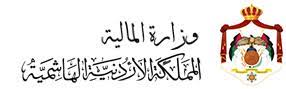 وزارة المالية
المملكة الأردنية الهاشمية